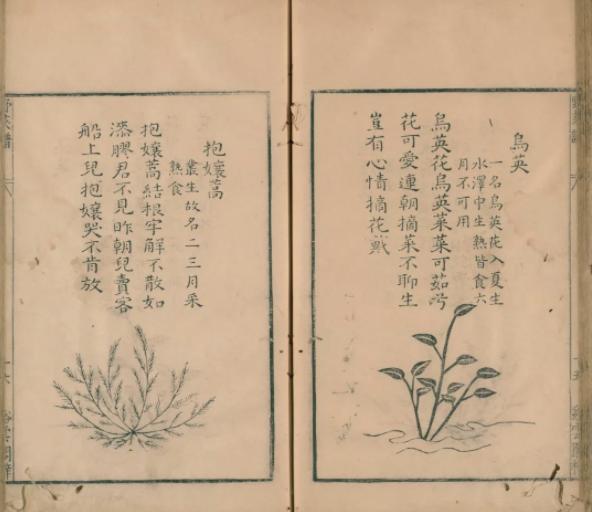 烏英
一名烏英花入夏生
水澤中生熟皆食六
月不可用
烏英花烏英菜菜可茹兮
花可愛連朝摘菜不聊生
豈有心情摘花戴
抱孃蒿
叢生故名二三月采
熟食
抱孃蒿結根牢解不散如
漆膠君不見昨朝兒賣客
船上兒抱孃哭不肯放